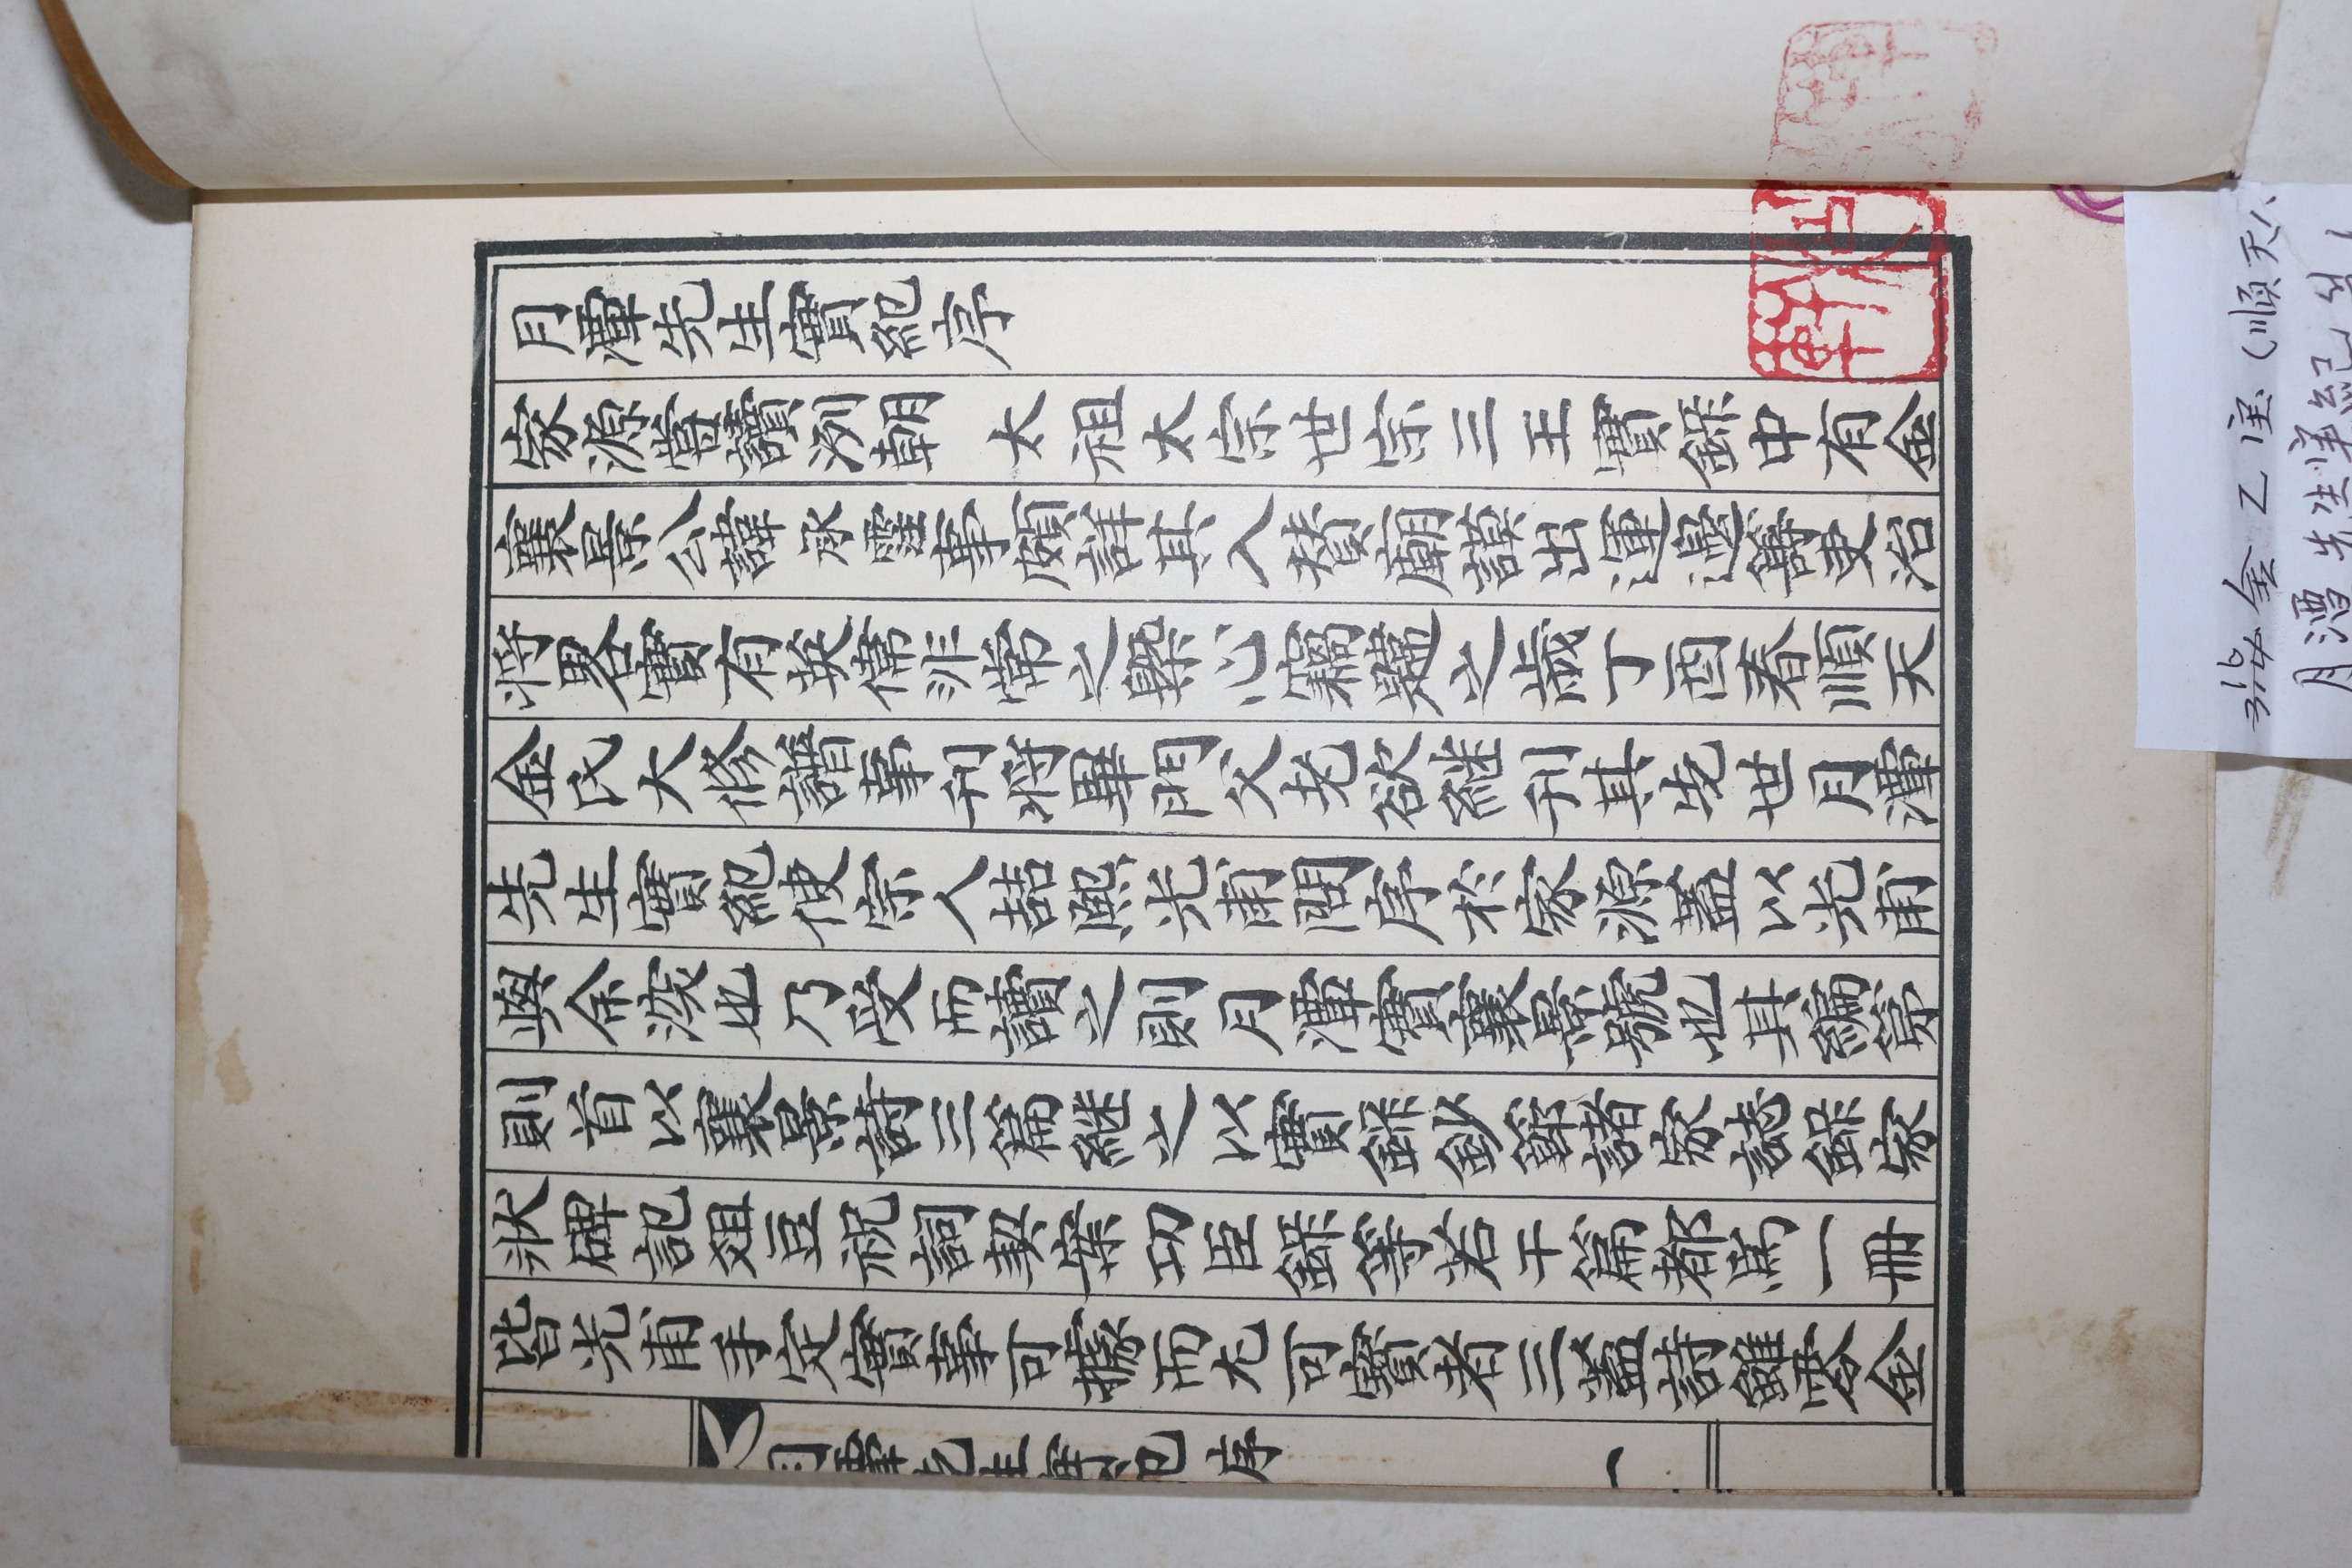 月潭先生實紀序
家源嘗讀洌朝　太祖太宗世宗三王實錄中有金
襄景公諱承霔事頗詳其入賛廟謨出運邊籌吏治
將畧實有英偉非常之槩心竊韙之歲丁酉春順天
金氏大修譜事刊將畢門父老欲継刊其先世月潭
先生實紀使宗人喆熙光甫問序於家源蓋以光甫
與余深也乃受而讀之則月潭實襄景號也其編第
則首以襄景詩三篇継之以實錄鈔節諸家誌錄家
狀碑記俎豆祝詞契案功臣錄等若干篇都爲一冊
皆光甫手定實事可據而尤可寶者三蓋詩雖零金
月潭先生實紀 序 一
軒
金乙宝(順天人
月潭先生実紀